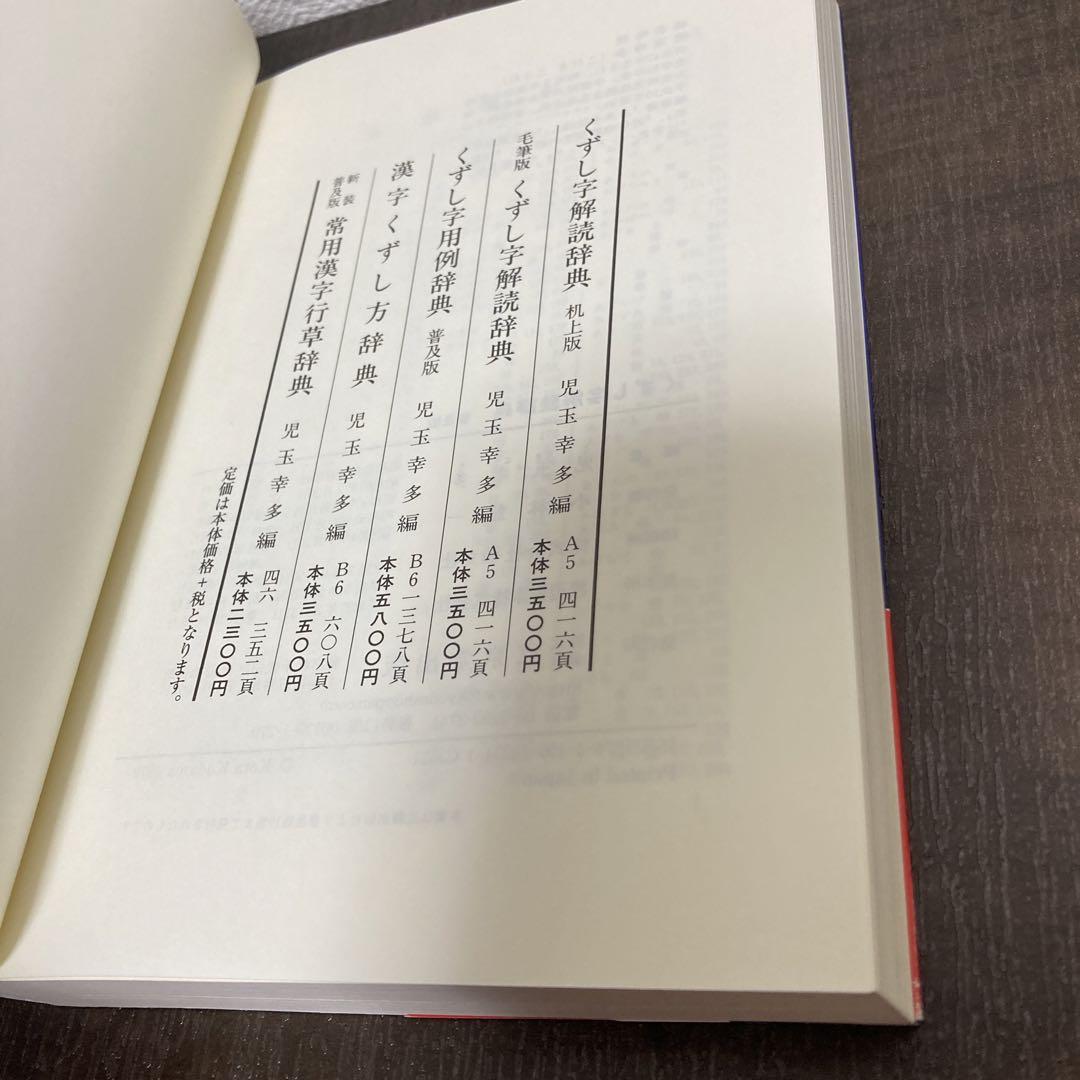 くずし字解読辞典 机上版 児玉幸多編 A5 四一六頁 本体三五〇〇円
毛筆版 くずし字解読辞典 児玉幸多編 A5 四一六頁 本体三五〇〇円
くずし字用例辞典 普及版 児玉幸多編 B6 一三七八頁 本体五八〇〇円
漢字くずし方辞典 児玉幸多編 B6 六〇八頁 本体三五〇〇円
新装普及版 常用漢字行草辞典 児玉幸多編 四六 三五二頁 本体二三〇〇円
定価は本体価格+税となります。